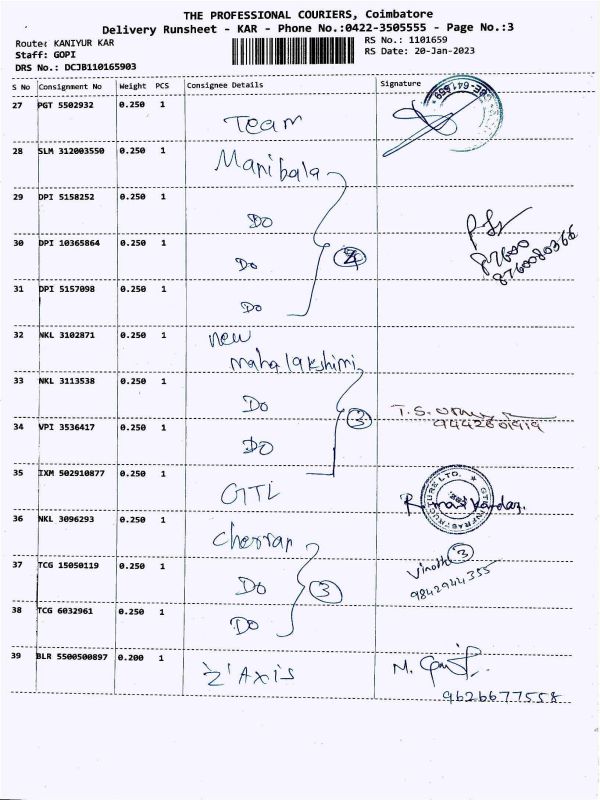 THE PROFESSIONAL COURIERS, Coimbatore
Delivery Runsheet - KAR - Phone No.:0422-3505555 - Page No.:3
Route: KANIYUR KAR
RS No.: 1101659
Staff: GOPI
RS Date: 20-Jan-2023
DRS No.: DCJB110165903
S No Consignment No Weight PCS Consignee Details Signature
27 PGT 5502932 0.250 1 Team
28 SLM 312003550 0.250 1 Manibala
29 DPI 5158252 0.250 1 Do
30 DPI 10365864 0.250 1 Do
8760080366
31 DPI 5157098 0.250 1 Do
32 NKL 3102871 0.250 1 new
mahalakshimi
33 NKL 3113538 0.250 1 Do
3 T.S.
34 VPI 3536417 0.250 1 Do
35 IXM 502910877 0.250 1 GTL
36 NKL 3096293 0.250 1 Cherran
37 TCG 15050119 0.250 1 Do 3 Vinoth 3
9842944355
38 TCG 6032961 0.250 1 Do
39 BLR 5500500897 0.200 1 'Z' Axis M.
9626677558